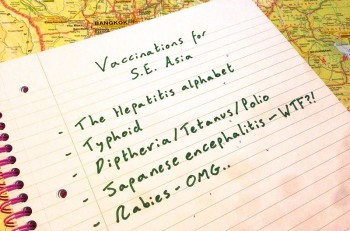 BANGKOK
Vaccinations for
S.E. Asia
- The Hepatitis alphabet
- Typhoid
- Diptheria/Tetanus/Polio
- Japanese encephalitis - WTF?!
- Rabies - OMG..